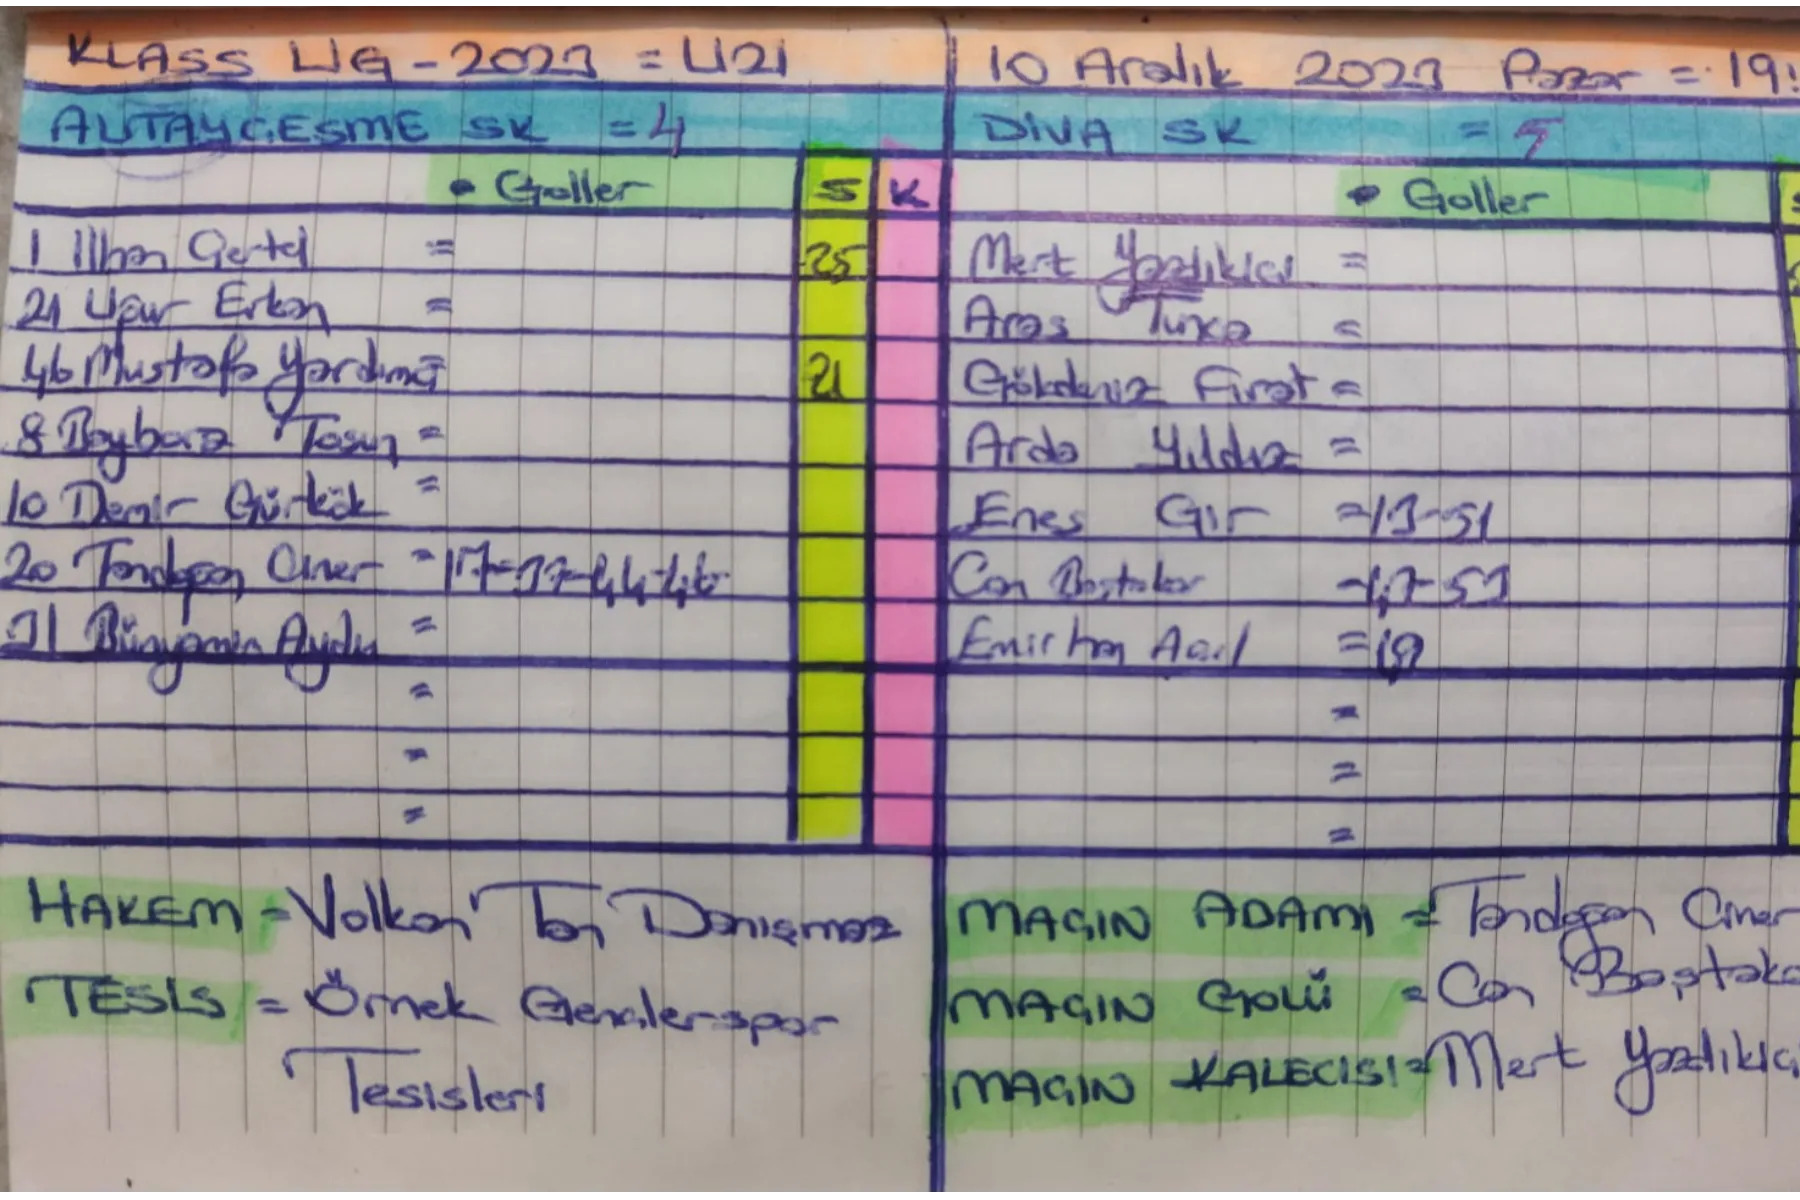 KLASS LİG - 2023 = U21
10 Aralık 2023 Pazar = 19:
ALTAYÇEŞME SK = 4
DİVA SK = 5
• Goller S K
• Goller S
1 İlhan =
25
21 Uğur Erkan =
46 Mustafa Yardımcı =
21
8 Baybars Tosun =
10 Demir Gürkök =
20 Tandoğan Çınar = 17-37-44-46
31 Bünyamin Aydın =
=
=
=
Mert Yazdıkici =
Aras =
Gökdeniz Fırat =
Arda Yıldız =
Enes Gır = 13-51
Can Baştakar = 47-53
Emirhan Acıl = 19
=
=
=
HAKEM = Volkan Tan Danışmaz
TESİS = Örnek Gençlerspor
Tesisleri
MAÇIN ADAMI = Tandoğan Çınar
MAÇIN GOLÜ = Can Baştaka
MAÇIN KALECİSİ = Mert Yazdıkici